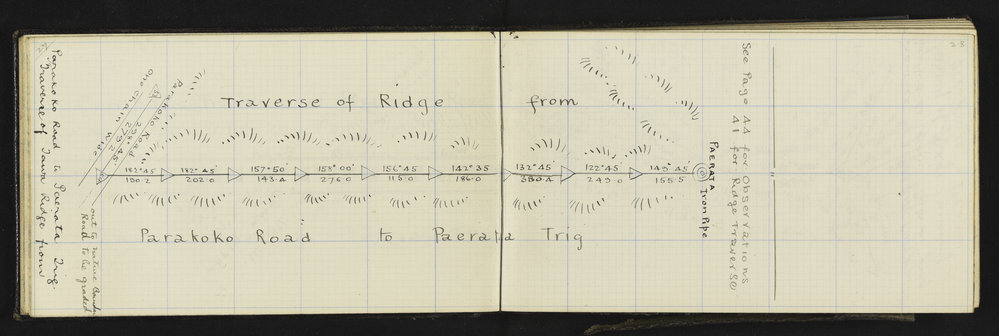 27
Traverse of Tawa Ridge from
Parakoko Road to Paerata Trig.
Traverse of Ridge from
Parakoko Road
298° 45'
275.2
One chain wide
182° 45' 182° 45' 157° 50' 158° 00' 156° 45' 142° 35 132° 45' 122° 45' 149° 45'
100.2 202.0 143.4 276.0 115.0 186.0 380.4 249.0 155.5
out to native Bound
Road to be graded
Parakoko Road to Paerata Trig
PAERATA
Iron Pipe
See Page 44 for Observations
41 for Ridge Traverse
28